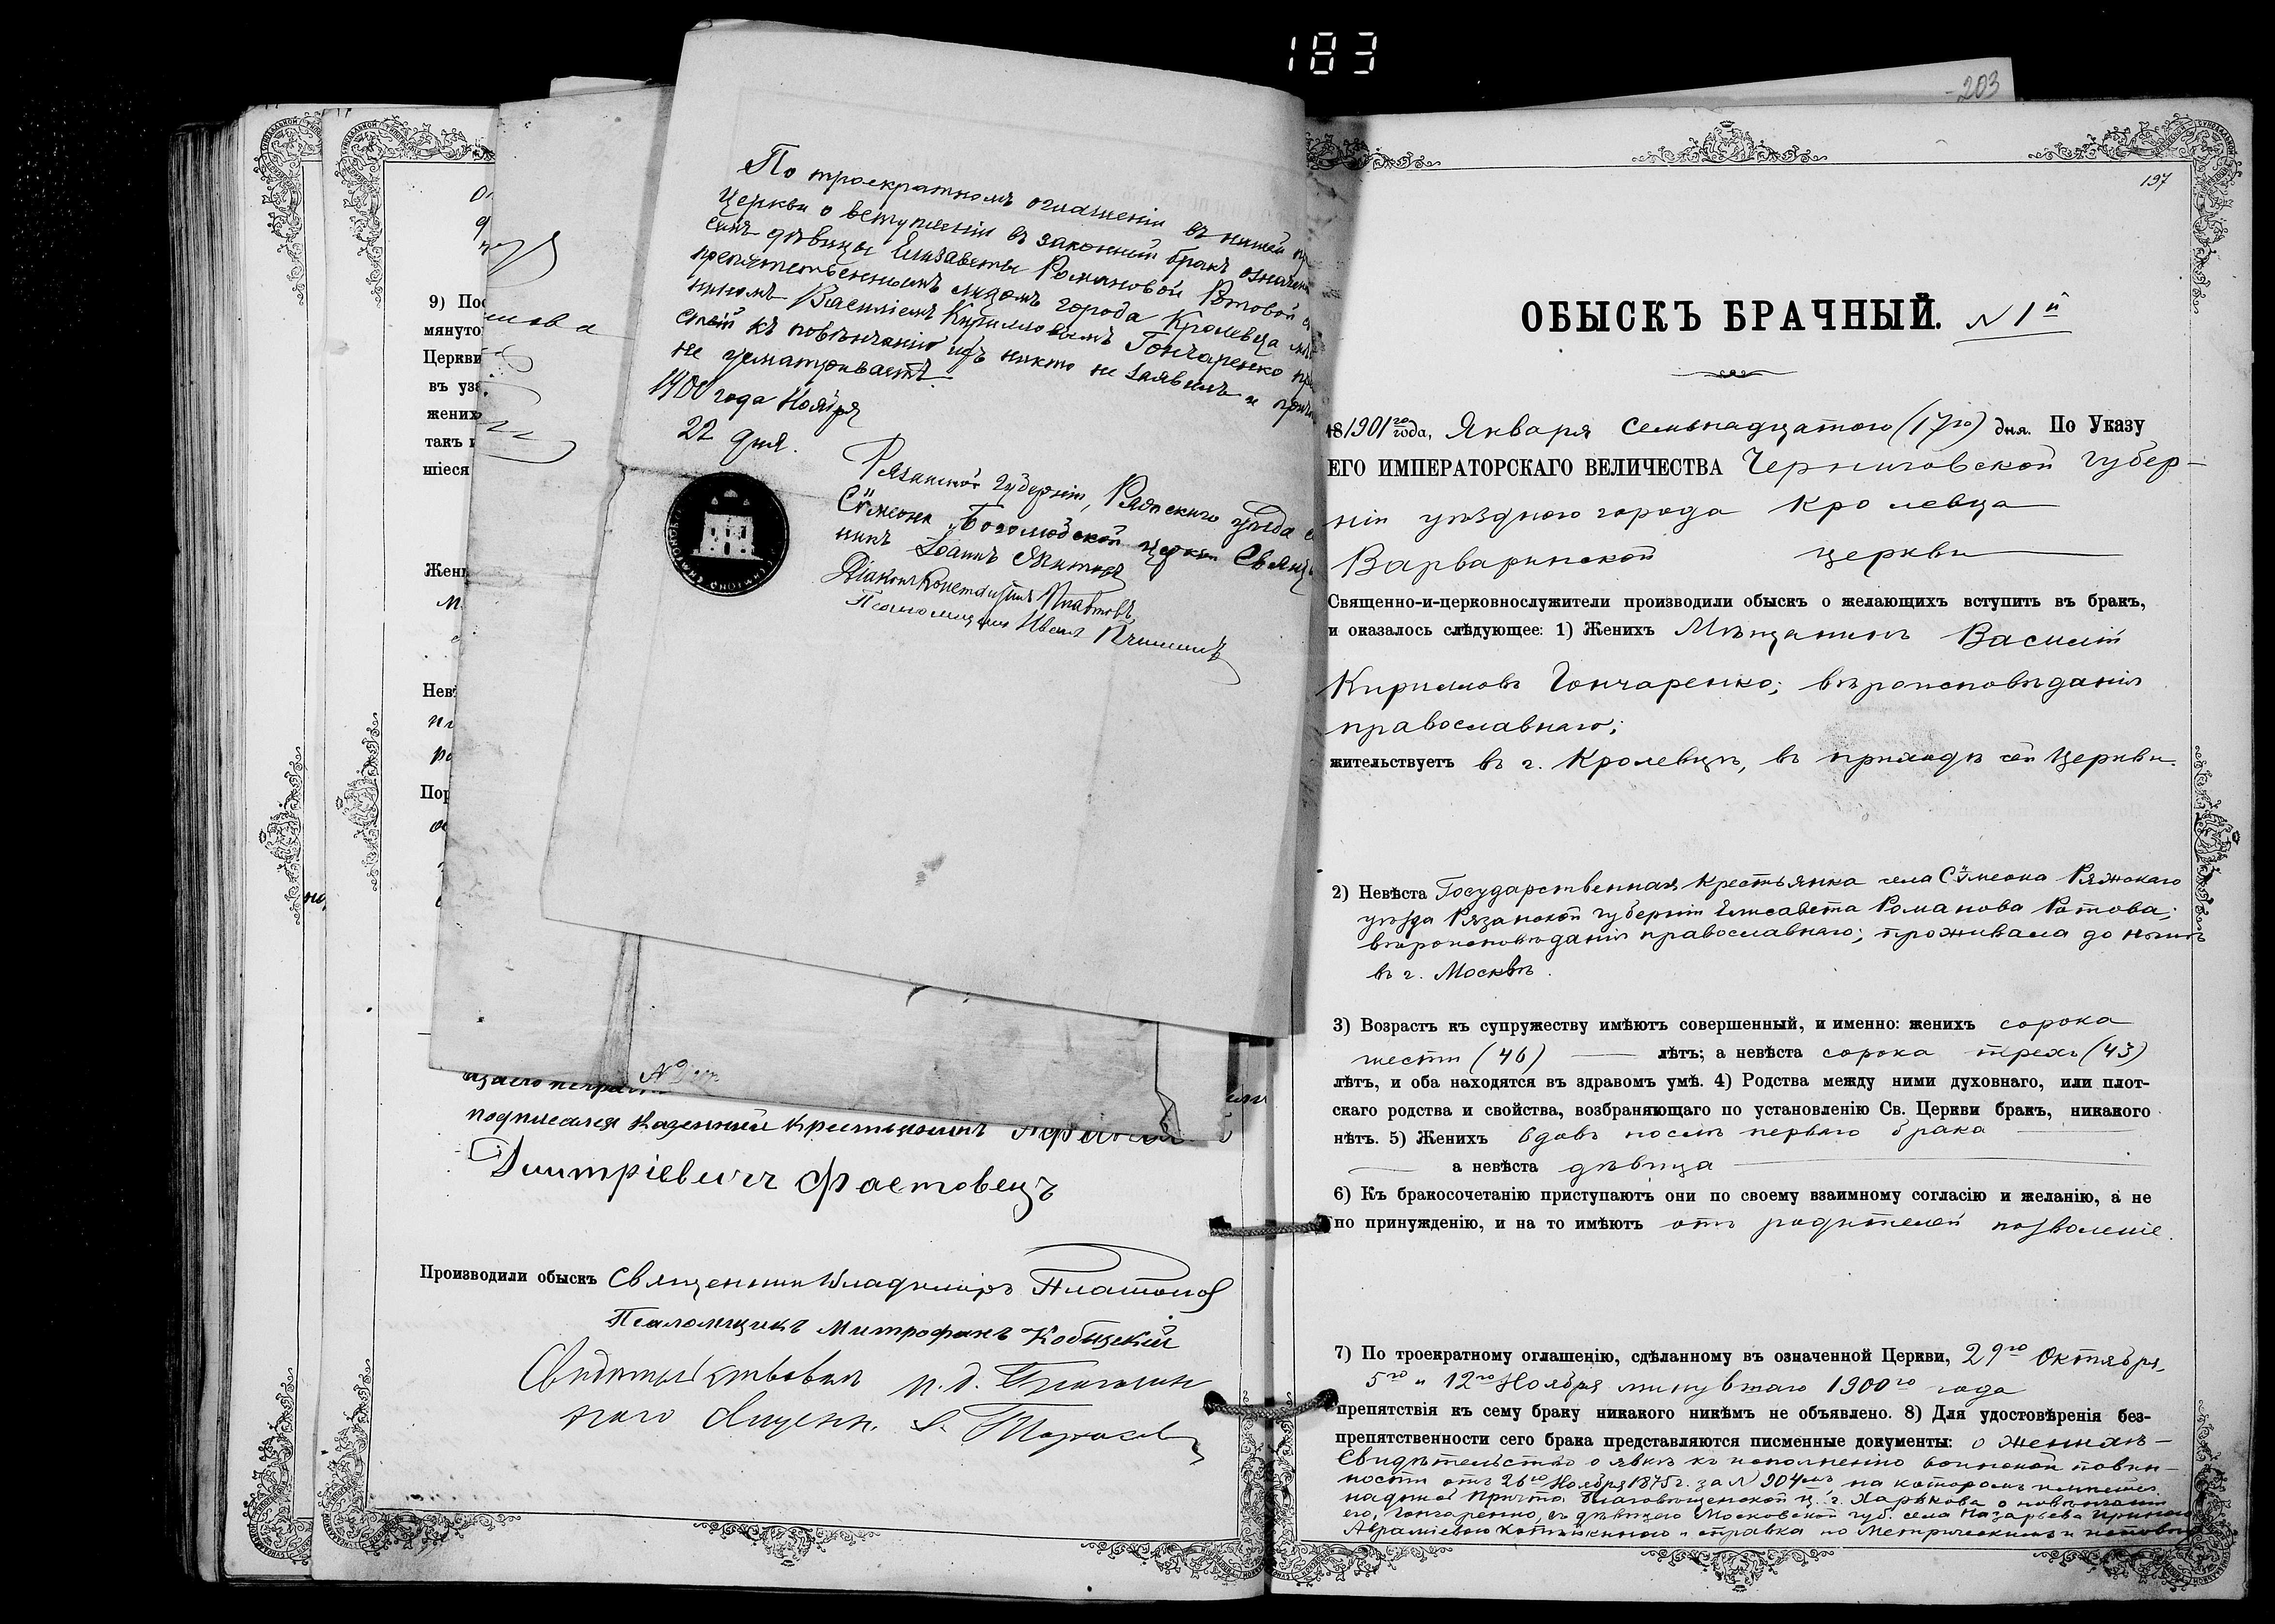 183
203
По троекратномъ оглашеніи въ нашей
Церкви о вступленіи въ законный бракъ
дѣвицы Елизаветы Романовой Ротовой
препятственнымъ лицомъ города Кролевца
Василіемъ Кирилловымъ Гончаренко
къ повѣнчанію ихъ никто не заявилъ и
не усматривается.
1900 года Ноября
22 дня.
Рязанской губерніи, Ряжскаго уѣзда
Сѵмеона Богословской церкви Священ
никъ Іоаннъ
Діаконъ Константинъ
Псаломщикъ Иванъ
9) Пос
мянуто
Церкви
въ уза
жених
такъ и
шіеся
Жени
Невѣ
Пор
подписался казенный крестьянинъ
Дмитріевичъ Фастовецъ
Производили обыскъ Священникъ Владиміръ Платонов
Псаломщикъ Митрофанъ Кобыцкій
197
ОБЫСКЪ БРАЧНЫЙ. N 1й
18 1901го года, Января семьнадцатого (17го) дня. По Указу
ЕГО ИМПЕРАТОРСКАГО ВЕЛИЧЕСТВА Черниговской губер-
ніи уѣздного города Кролевца
Варваринской церкви
Священно-и-церковнослужители производили обыскъ о желающихъ вступить въ бракъ,
и оказалось слѣдующее: 1) Женихъ Мѣщанинъ Василій
Кирилловъ Гончаренко; вѣроисповѣданія
православнаго;
жительствуетъ въ г. Кролевцѣ, въ приходѣ сей Церкви.
2) Невѣста Государственная крестьянка села Сѵмеона Ряжскаго
уѣзда Рязанской губерніи Елисавета Романова Ротова;
вѣроисповѣданія православнаго; проживала до нынѣ
въ г. Москвѣ.
3) Возрастъ къ супружеству имѣютъ совершенный, и именно: женихъ сорока
шести (46) лѣтъ; а невѣста сорока трехъ (43)
лѣтъ, и оба находятся въ здравомъ умѣ. 4) Родства между ними духовнаго, или плот-
скаго родства и свойства, возбраняющаго по установленію Св. Церкви бракъ, никакого
нѣтъ. 5) Женихъ вдовъ послѣ перваго брака
а невѣста дѣвица
6) Къ бракосочетанію приступаютъ они по своему взаимному согласію и желанію, а не
по принужденію, и на то имѣютъ отъ родителей позволеніе.
7) По троекратному оглашенію, сдѣланному въ означенной Церкви, 29го Октября,
5го и 12го Ноября минувшаго 1900го года
препятствія къ сему браку никакого никѣмъ не объявлено. 8) Для удостовѣренія без-
препятственности сего брака представляются писменные документы: о женихѣ-
Свидѣтельство о явкѣ къ исполненію воинской повин-
ности отъ 26го Ноября 1875г. за N 904мъ, на которомъ имѣется
надпись Причта Благовѣщенской ц. г. Харькова о повѣнчаніи
его, Гончаренко, съ дѣвицею Московской губ. села Назарьева Ириною
Авраміевою и справка по Метрическимъ и исповѣд